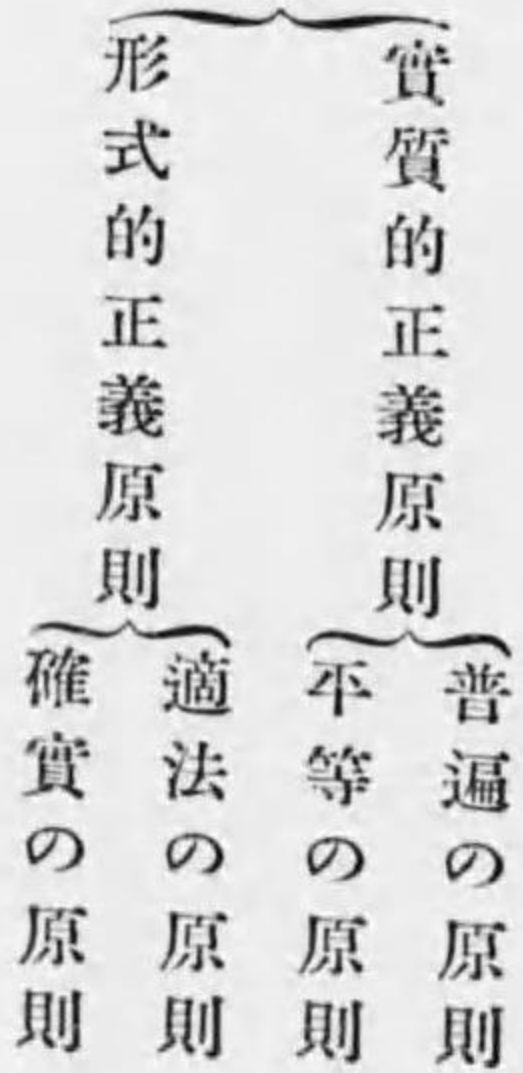 實質的正義原則
普遍の原則
平等の原則
形式的正義原則
適法の原則
確實の原則